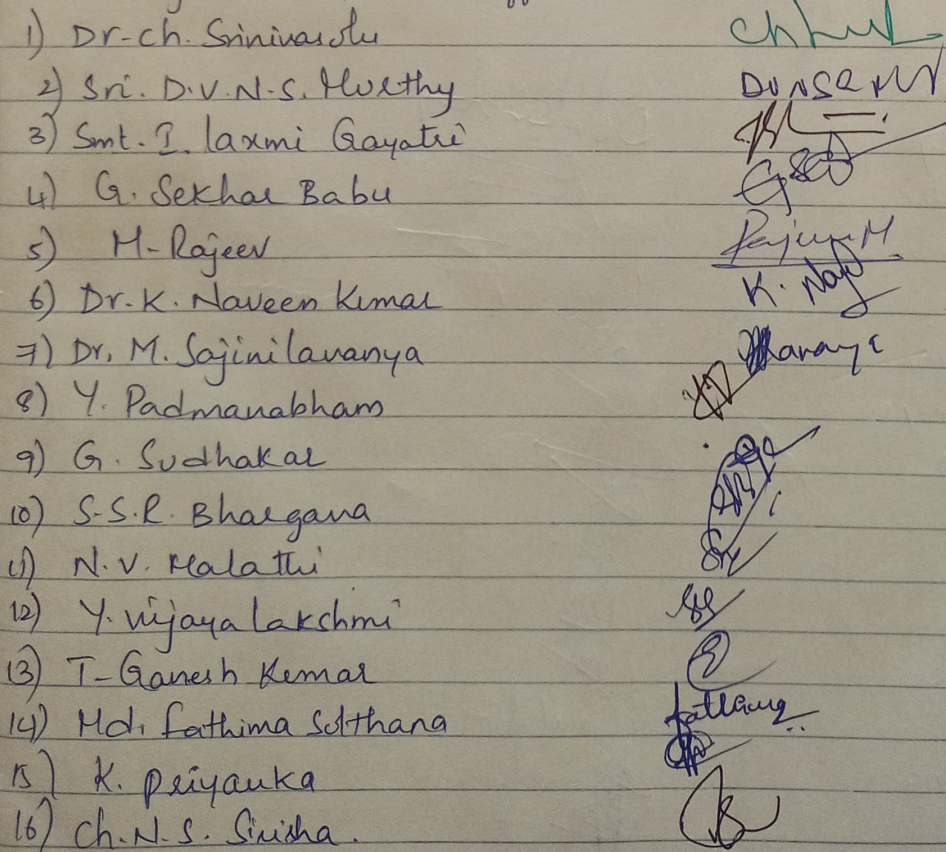 1) Dr-ch. Srinivasolu
2) Sri. D.V.N.S. Murthy DVNSRM
3) Smt. I. laxmi Gayatri
4) G. Sekhar Babu
5) M-Rajeev Rajeev M
6) Dr. K. Naveen Kumar K. Nav
7) Dr. M. Sajinilavanya lavanya
8) Y. Padmanabham
9) G. Sudhakar
10) S.S.R. Bhargava
11) N.V. Malathi
12) Y. vijaya lakshmi
13) T-Ganesh Kumar
14) Md. fathima Solthana fathima
15) K. priyanka
16) Ch.N.S. Sirisha.